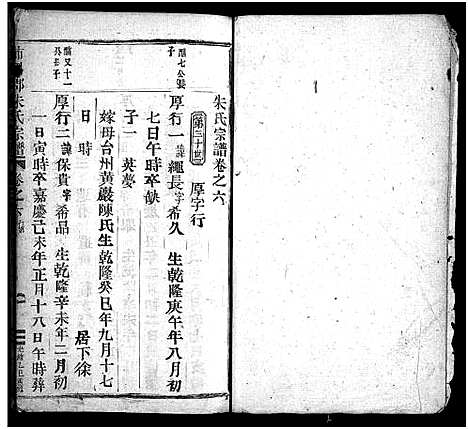 朱氏宗譜卷之六
第三十世 厚字行
厚行一 諱繩長字希久 生乾隆庚午年八月初
七日午時卒缺
子一 英夢
嫁母台州黃嚴陳氏生乾隆癸巳年九月十七
日 時 居下徐
厚行二 諱保貴字希品 生乾隆辛未年二月初
一日寅時卒嘉慶己未年正月十八日午時葬
朱氏宗譜 卷之六